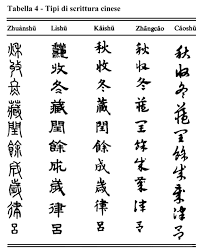 Tabella 4 - Tipi di scrittura cinese
Zhuànshū Lìshū Kǎishū Zhāngcǎo Cǎoshū
秋 秋 秋 秋 秋
收 收 收 收 收
冬 冬 冬 冬 冬
藏 藏 藏 藏 藏
閏 閏 閏 閏 閏
餘 餘 餘 餘 餘
成 成 成 成 成
歲 歲 歲 歲 歲
律 律 律 律 律
呂 呂 呂 呂 呂